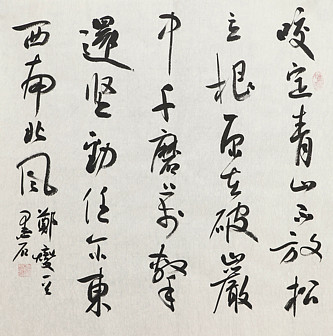 咬定青山不放松
立根原在破巖
中千磨萬擊
還坚勁任尔東
西南北风
鄭燮
石